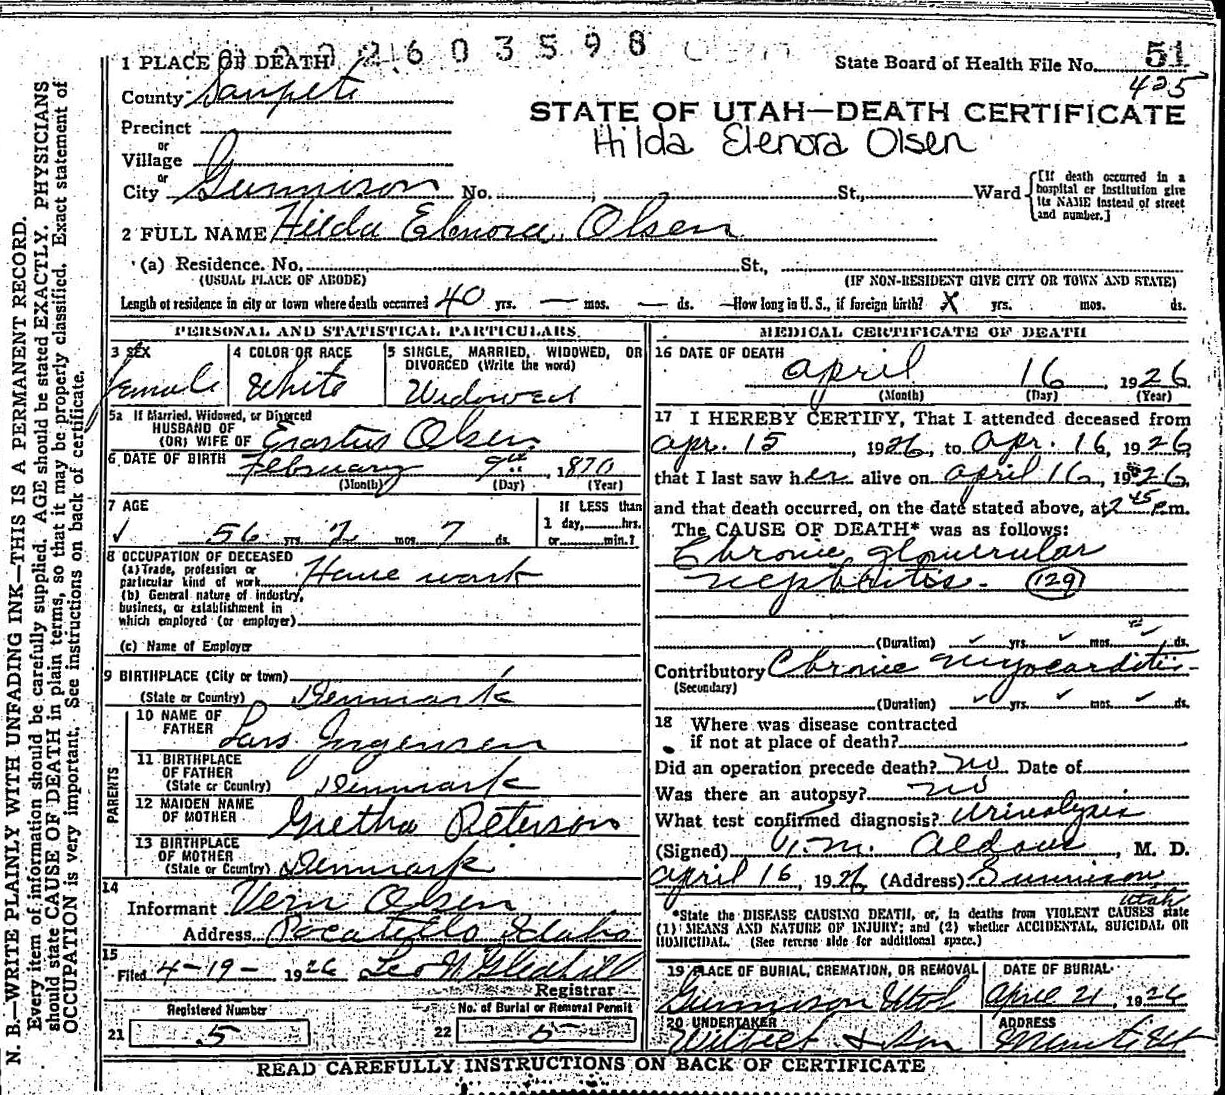 2603598
1 PLACE OF DEATH
State Board of Health File No. 51
425
County Sanpete
STATE OF UTAH—DEATH CERTIFICATE
Hilda Elenora Olsen
Precinct
or
Village
or
City Gunnison No. St., Ward
[If death occurred in a hospital or institution give its NAME instead of street and number.]
2 FULL NAME Hilda Elenora Olsen
(a) Residence. No. St.,
(USUAL PLACE OF ABODE) (IF NON-RESIDENT GIVE CITY OR TOWN AND STATE)
Length of residence in city or town where death occurred 40 yrs. — mos. — ds. —How long in U. S., if foreign birth? X yrs. mos. ds.
PERSONAL AND STATISTICAL PARTICULARS
3 SEX
female
4 COLOR OR RACE
White
5 SINGLE, MARRIED, WIDOWED, OR
DIVORCED (Write the word)
Widowed
5a If Married, Widowed, or Divorced
HUSBAND OF
(OR) WIFE OF Erastus Olsen
6 DATE OF BIRTH February 9th, 1870
(Month) (Day) (Year)
7 AGE
56 yrs. 2 mos. 7 ds.
If LESS than
1 day, hrs.
or min.?
8 OCCUPATION OF DECEASED
(a) Trade, profession or
particular kind of work House work
(b) General nature of industry,
business, or establishment in
which employed (or employer)
(c) Name of Employer
9 BIRTHPLACE (City or town)
(State or Country) Denmark
PARENTS
10 NAME OF
FATHER Lars Jorgensen
11 BIRTHPLACE
OF FATHER
(State or Country) Denmark
12 MAIDEN NAME
OF MOTHER Gretha Peterson
13 BIRTHPLACE
OF MOTHER
(State or Country) Denmark
14
Informant Vern Olsen
Address Pocatello Idaho
15
Filed 4-19- 1926 Leo N Gledhill
Registrar
Registered Number
21 5
No. of Burial or Removal Permit
22 5
MEDICAL CERTIFICATE OF DEATH
16 DATE OF DEATH
april 16, 1926
(Month) (Day) (Year)
17 I HEREBY CERTIFY, That I attended deceased from
apr. 15, 1926, to apr. 16, 1926
that I last saw her alive on april 16, 1926,
and that death occurred, on the date stated above, at 2 45 P.m.
The CAUSE OF DEATH* was as follows:
Chronic glomerular
nephritis. (129)
(Duration) yrs. mos. ds.
Contributory Chronic myocarditis-
(Secondary)
(Duration) yrs. mos. ds.
18 Where was disease contracted
if not at place of death?
Did an operation precede death? no Date of
Was there an autopsy? no
What test confirmed diagnosis? Urinalysis
(Signed) Aldous, M. D.
april 16, 1926 (Address) Gunnison,
Utah
*State the DISEASE CAUSING DEATH, or, in deaths from VIOLENT CAUSES state
(1) MEANS AND NATURE OF INJURY; and (2) whether ACCIDENTAL, SUICIDAL OR
HOMICIDAL. (See reverse side for additional space.)
19 PLACE OF BURIAL, CREMATION, OR REMOVAL
Gunnison Utah
DATE OF BURIAL
april 21, 1926
20 UNDERTAKER
& Son
ADDRESS
Manti Ut
READ CAREFULLY INSTRUCTIONS ON BACK OF CERTIFICATE
N. B.—WRITE PLAINLY WITH UNFADING INK—THIS IS A PERMANENT RECORD.
Every item of information should be carefully supplied. AGE should be stated EXACTLY. PHYSICIANS
should state CAUSE OF DEATH in plain terms, so that it may be properly classified. Exact statement of
OCCUPATION is very important. See instructions on back of certificate.